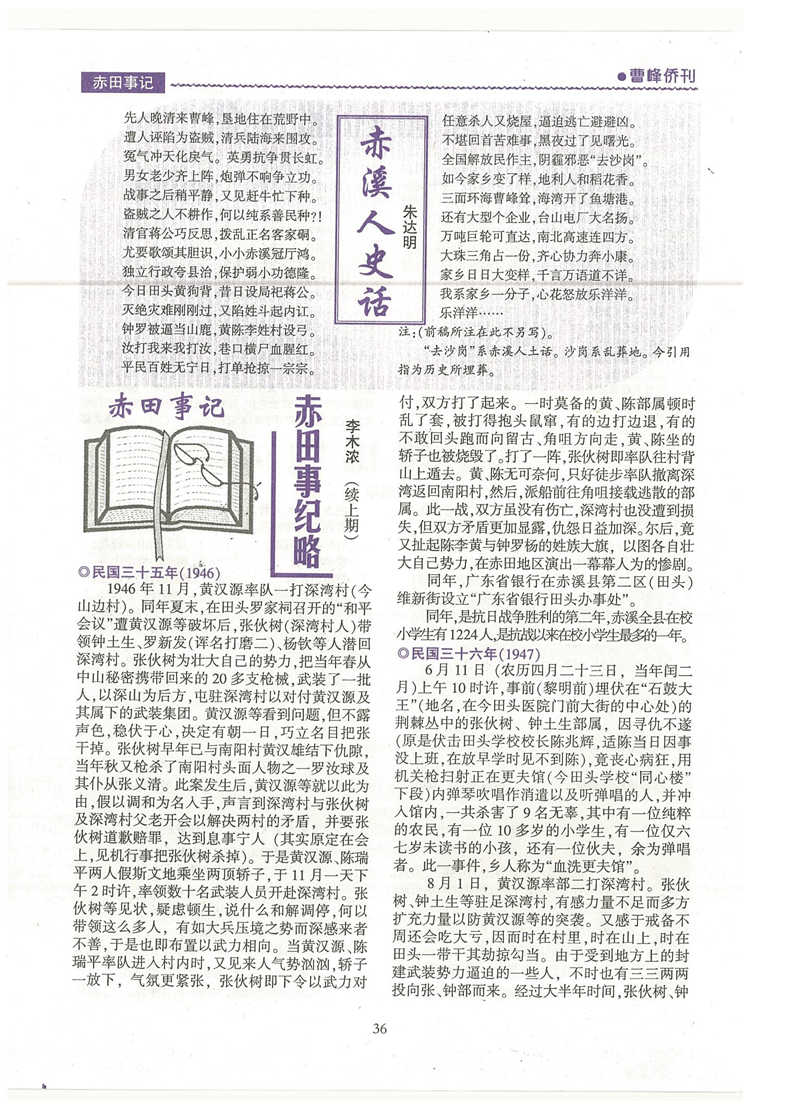 赤田事记
●曹峰侨刊
赤溪人史话
朱达明
先人晚清来曹峰,垦地住在荒野中。
遭人诬陷为盗贼,清兵陆海来围攻。
冤气冲天化戾气。英勇抗争贯长虹。
男女老少齐上阵,炮弹不响争立功。
战事之后稍平静,又见赶牛忙下种。
盗贼之人不耕作,何以纯系善民种?!
清官蒋公巧反思,拨乱正名客家嗣。
尤要歌颂其胆识,小小赤溪冠厅鸿。
独立行政夸县治,保护弱小功德隆。
今日田头黄狗背,昔日设局祀蒋公。
灭绝灾难刚刚过,又陷姓斗起内讧。
钟罗被逼当山鹿,黄陈李姓村设弓。
汝打我来我打汝,巷口横尸血腥红。
平民百姓无宁日,打单抢掠一宗宗。
任意杀人又烧屋,逼迫逃亡避避凶。
不堪回首苦难事,黑夜过了见曙光。
全国解放民作主,阴霾邪恶“去沙岗”。
如今家乡变了样,地利人和稻花香。
三面环海曹峰耸,海湾开了鱼塘港。
还有大型个企业,台山电厂大名扬。
万吨巨轮可直达,南北高速连四方。
大珠三角占一份,齐心协力奔小康。
家乡日日大变样,千言万语道不详。
我系家乡一分子,心花怒放乐洋洋。
乐洋洋……
注:(前稿所注在此不另写)。
“去沙岗”系赤溪人土话。沙岗系乱葬地。今引用
指为历史所埋葬。
赤田事记
赤田事纪略
李木浓
(续上期)
◎民国三十五年(1946)
1946 年 11 月,黄汉源率队一打深湾村(今
山边村)。同年夏末,在田头罗家祠召开的“和平
会议”遭黄汉源等破坏后,张伙树(深湾村人)带
领钟土生、罗新发(诨名打磨二)、杨钦等人潜回
深湾村。张伙树为壮大自己的势力,把当年春从
中山秘密携带回来的 20 多支枪械,武装了一批
人,以深山为后方,屯驻深湾村以对付黄汉源及
其属下的武装集团。黄汉源等看到问题,但不露
声色,稳伏于心,决定有朝一日,巧立名目把张
干掉。张伙树早年已与南阳村黄汉雄结下仇隙,
当年秋又枪杀了南阳村头面人物之一罗汝球及
其仆从张义清。此案发生后,黄汉源等就以此为
由,假以调和为名入手,声言到深湾村与张伙树
及深湾村父老开会以解决两村的矛盾，并要张
伙树道歉赔罪，达到息事宁人 (其实原定在会
上,见机行事把张伙树杀掉)。于是黄汉源、陈瑞
平两人假斯文地乘坐两顶轿子,于 11 月一天下
午 2 时许,率领数十名武装人员开赴深湾村。张
伙树等见状,疑虑顿生,说什么和解调停,何以
带领这么多人，有如大兵压境之势而深感来者
不善,于是也即布置以武力相向。当黄汉源、陈
瑞平率队进入村内时,又见来人气势汹汹,轿子
一放下，气氛更紧张，张伙树即下令以武力对
付,双方打了起来。一时莫备的黄、陈部属顿时
乱了套,被打得抱头鼠窜,有的边打边退,有的
不敢回头跑而向留古、角咀方向走,黄、陈坐的
轿子也被烧毁了。打了一阵,张伙树即率队往村背
山上遁去。黄、陈无可奈何,只好徒步率队撤离深
湾返回南阳村,然后,派船前往角咀接载逃散的部
属。此一战,双方虽没有伤亡,深湾村也没遭到损
失,但双方矛盾更加显露,仇怨日益加深。尔后,竟
又扯起陈李黄与钟罗杨的姓族大旗，以图各自壮
大自己势力,在赤田地区演出一幕幕人为的惨剧。
同年,广东省银行在赤溪县第二区(田头)
维新街设立“广东省银行田头办事处”。
同年,是抗日战争胜利的第二年,赤溪全县在校
小学生有1224人,是抗战以来在校小学生最多的一年。
◎民国三十六年(1947)
6 月 11 日 (农历四月二十三日，当年闰二
月)上午 10 时许,事前(黎明前)埋伏在“石鼓大
王”(地名,在今田头医院门前大街的中心处)的
荆棘丛中的张伙树、钟土生部属，因寻仇不遂
(原是伏击田头学校校长陈兆辉,适陈当日因事
没上班,在放早学时见不到陈),竟丧心病狂,用
机关枪扫射正在更夫馆(今田头学校“同心楼”
下段)内弹琴吹唱作消遣以及听弹唱的人,并冲
入馆内,一共杀害了 9 名无辜,其中有一位纯粹
的农民,有一位 10 多岁的小学生,有一位仅六
七岁未读书的小孩，还有一位伙夫，余为弹唱
者。此一事件,乡人称为“血洗更夫馆”。
8 月 1 日，黄汉源率部二打深湾村。张伙
树、钟土生等驻足深湾村,有感力量不足而多方
扩充力量以防黄汉源等的突袭。又感于戒备不
周还会吃大亏,因而时在村里,时在山上,时在
田头一带干其劫掠勾当。由于受到地方上的封
建武装势力逼迫的一些人，不时也有三三两两
投向张、钟部而来。经过大半年时间,张伙树、钟
36